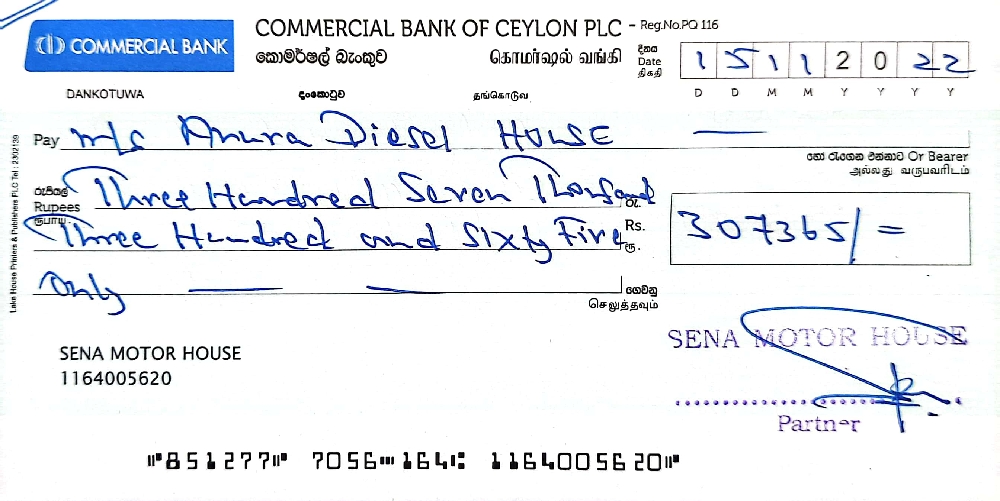 COMMERCIAL BANK
COMMERCIAL BANK OF CEYLON PLC - Reg.No.PQ 116
කොමර්ෂල් බැංකුව கொமர்ஷல் வங்கி
දිනය
Date
திகதி
1 5 1 1 2 0 2 2
D D M M Y Y Y Y
DANKOTUWA දංකොටුව தங்கொடுவ
Pay M/S Anura Diesel House
හෝ රැගෙන එන්නාට Or Bearer
அல்லது வருபவரிடம்
රුපියල්
Rupees
ரூபாய்
Three Hundred Seven Thousand
Three Hundred and Sixty Five
Only
රු.
Rs.
ரூ.
307365/=
ගෙවනු
செலுத்தவும்
Lake House Printers & Publishers PLC Tel : 2302139
SENA MOTOR HOUSE
1164005620
SENA MOTOR HOUSE
Partner
⑈851277⑈ 7056⑉164⑆ 1164005620⑈